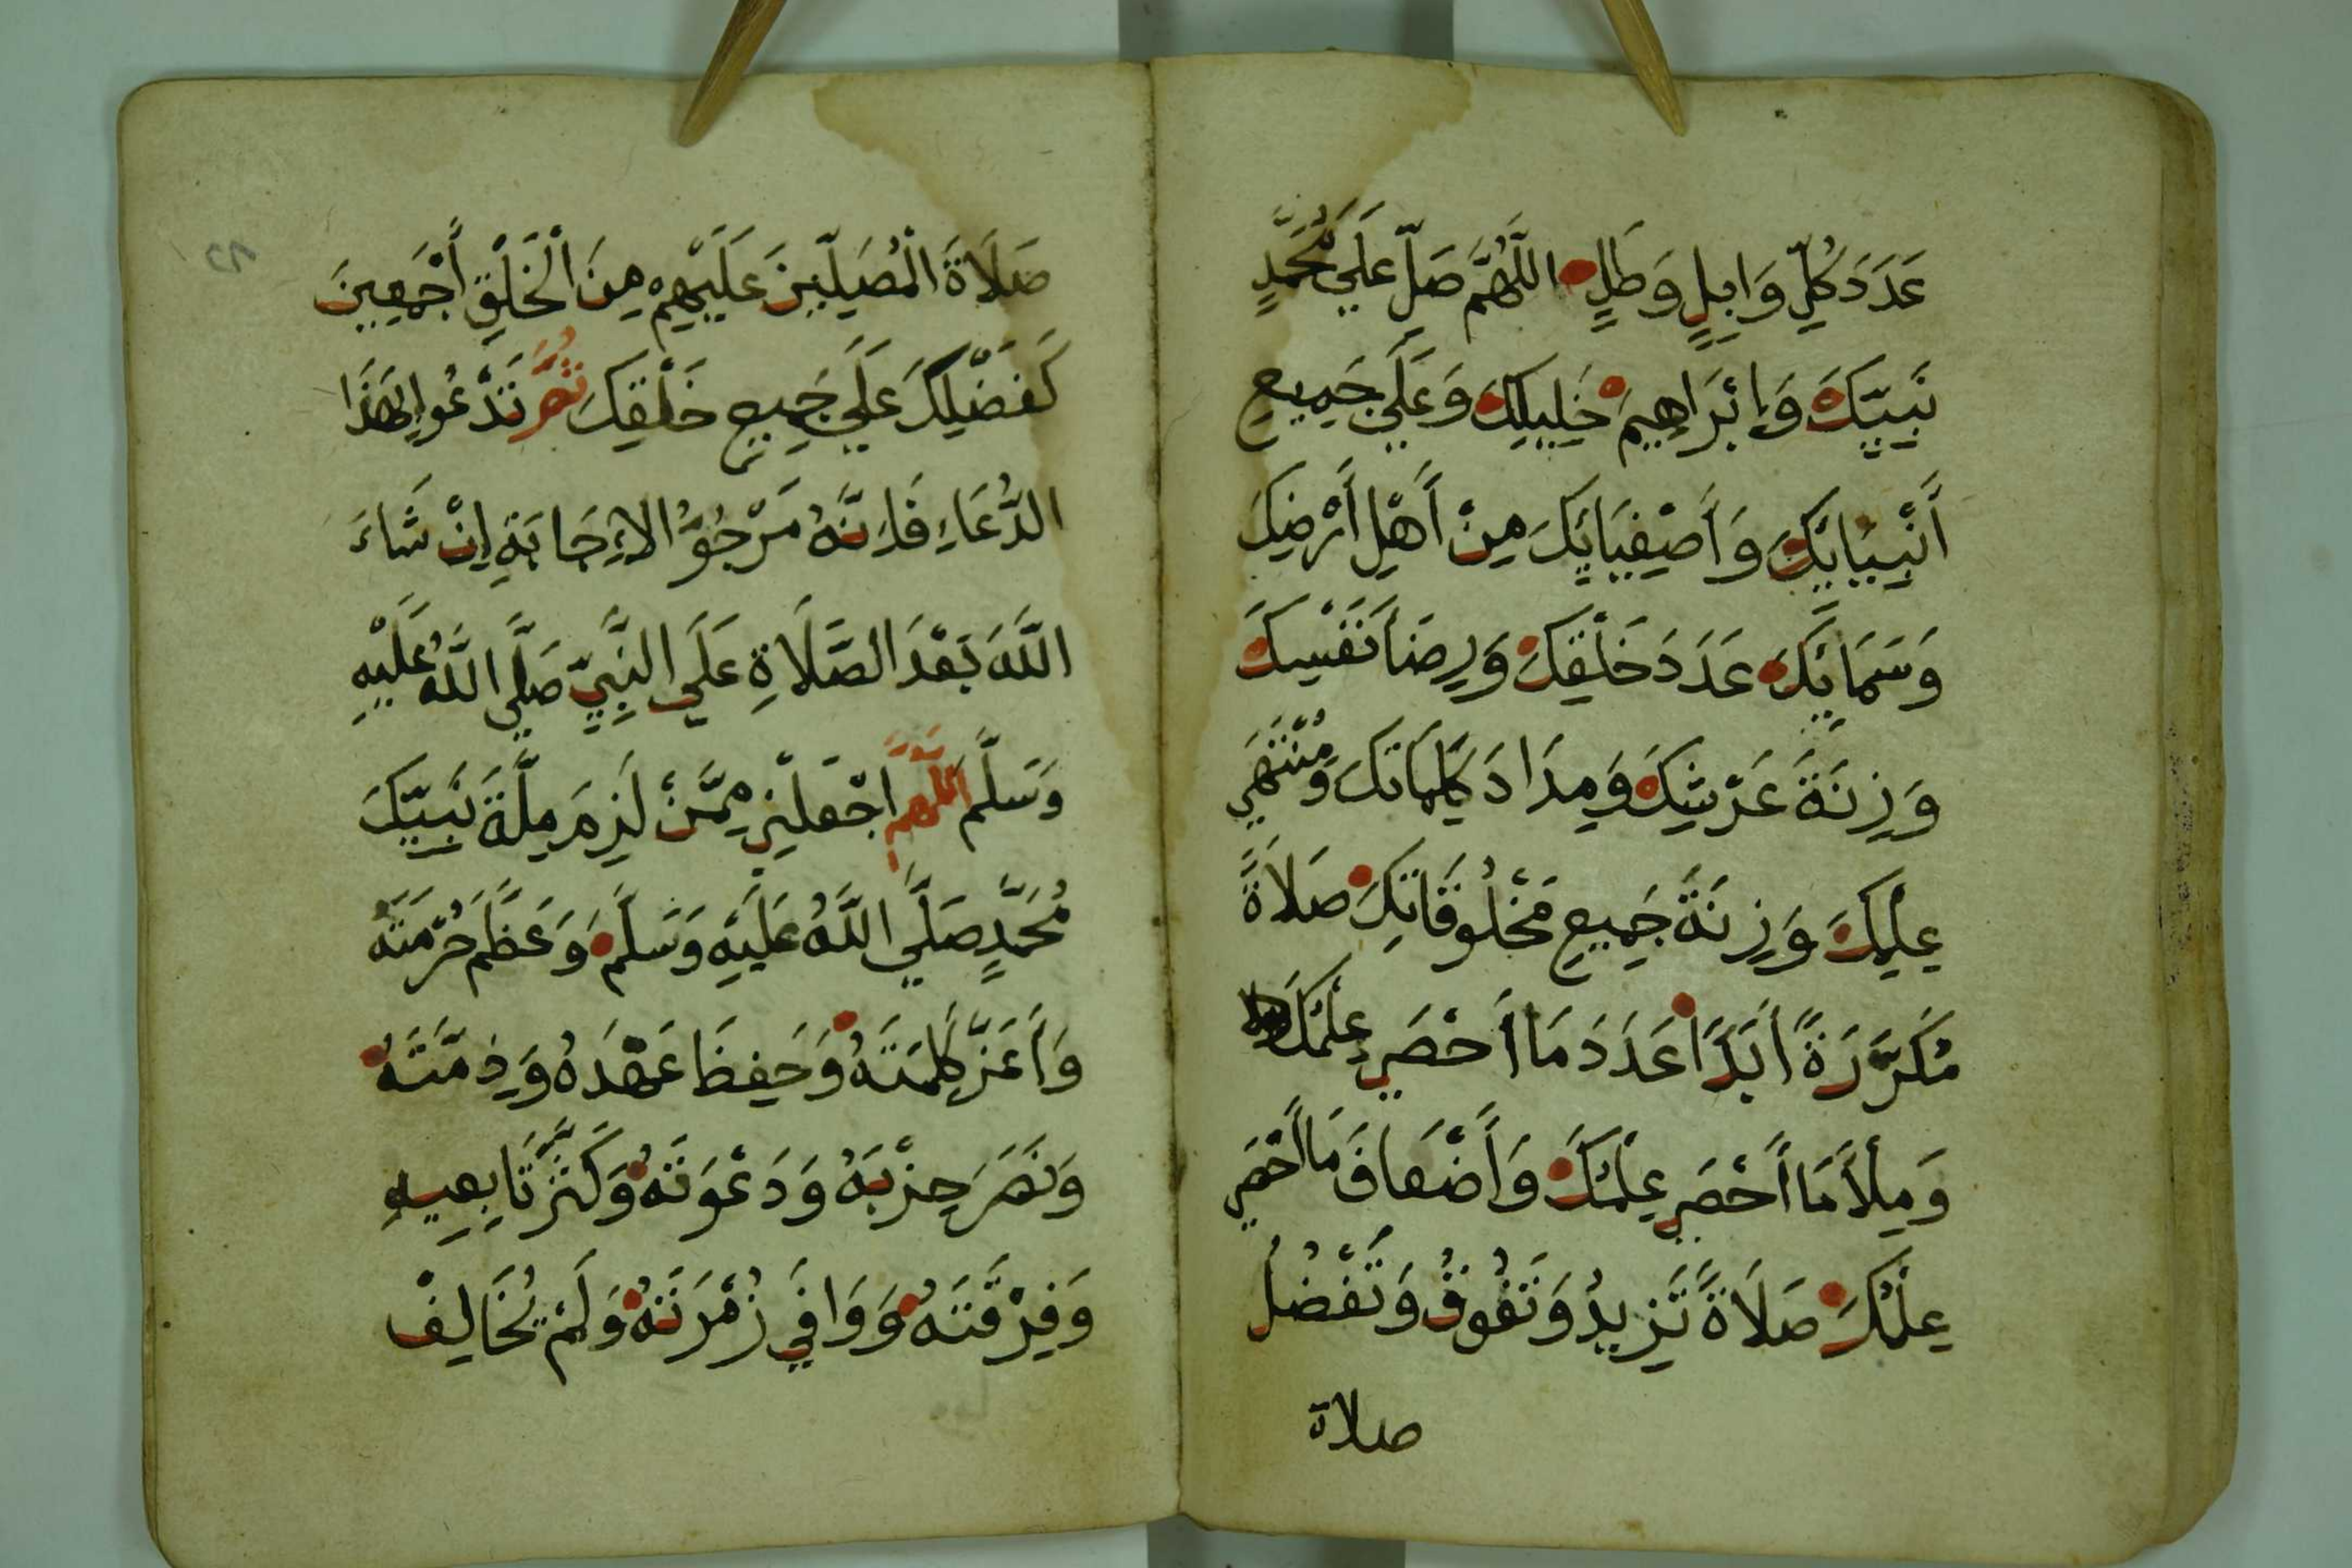 عَدَدَ كُلِّ وَابِلٍ وَطَلٍّ اللَّهُمَّ صَلِّ عَلَي مُحَمَّدٍ
نَبِيِّكَ وَإِبْرَاهِيمَ خَلِيلِكَ وَعَلَي جَمِيعِ
أَنْبِيَائِكَ وَأَصْفِيَائِكَ مِنْ أَهْلِ أَرْضِكَ
وَسَمَائِكَ عَدَدَ خَلْقِكَ وَرِضَا نَفْسِكَ
وَزِنَةَ عَرْشِكَ وَمِدَادَ كَلِمَاتِكَ وَمُنْتَهَي
عِلْمِكَ وَزِنَةَ جَمِيعِ مَخْلُوقَاتِكَ صَلَاةً
مُكَرَّرَةً أَبَدًا عَدَدَ مَا أَحْصَي عِلْمُكَ
وَمِلْأَ مَا أَحْصَي عِلْمُكَ وَأَضْعَافَ مَا أَحْصَي
عِلْمُكَ صَلَاةً تَزِيدُ وَتَفُوقُ وَتَفْضُلُ
صلاة
صَلَاةَ الْمُصَلِّينَ عَلَيْهِمْ مِنَ الْخَلْقِ أَجْمَعِينَ
كَفَضْلِكَ عَلَي جَمِيعِ خَلْقِكَ ثُمَّ تَدْعُوا بِهَذَا
الدُّعَاءِ فَإِنَّهُ مَرْجُوُّ الْإِجَابَةِ إِنْ شَاءَ
اللَّهُ بَعْدَ الصَّلَاةِ عَلَي النَّبِيِّ صَلَّي اللَّهُ عَلَيْهِ
وَسَلَّمَ اللَّهُمَّ اجْعَلْنِي مِمَّنْ لَزِمَ مِلَّةَ نَبِيِّكَ
مُحَمَّدٍ صَلَّي اللَّهُ عَلَيْهِ وَسَلَّمَ وَعَظَّمَ حُرْمَتَهُ
وَأَعَزَّ كَلِمَتَهُ وَحَفِظَ عَهْدَهُ وَذِمَّتَهُ
وَنَصَرَ حِزْبَهُ وَدَعْوَتَهُ وَكَثَّرَ تَابِعِيهِ
وَفِرْقَتَهُ وَوَافَي زُمْرَتَهُ وَلَمْ يُخَالِفْ